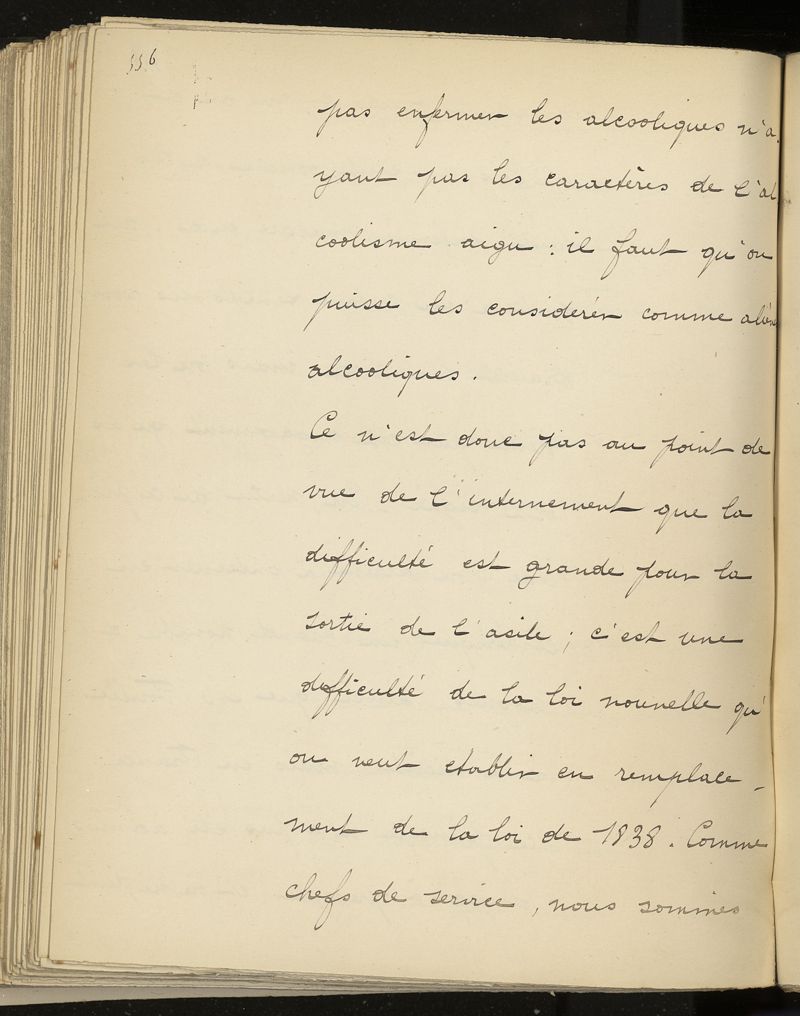 556
pas enfermer les alcooliques n'a
yant pas les caractères de l'al
coolisme aigu : il faut qu'on
puisse les considérer comme
alcooliques.
Ce n'est donc pas au point de
vue de l'internement que la
difficulté est grande pour la
sortie de l'asile ; c'est une
difficulté de la loi nouvelle qu'
on veut etablir en remplace-
ment de la loi de 1838. Comme
chefs de service, nous sommes